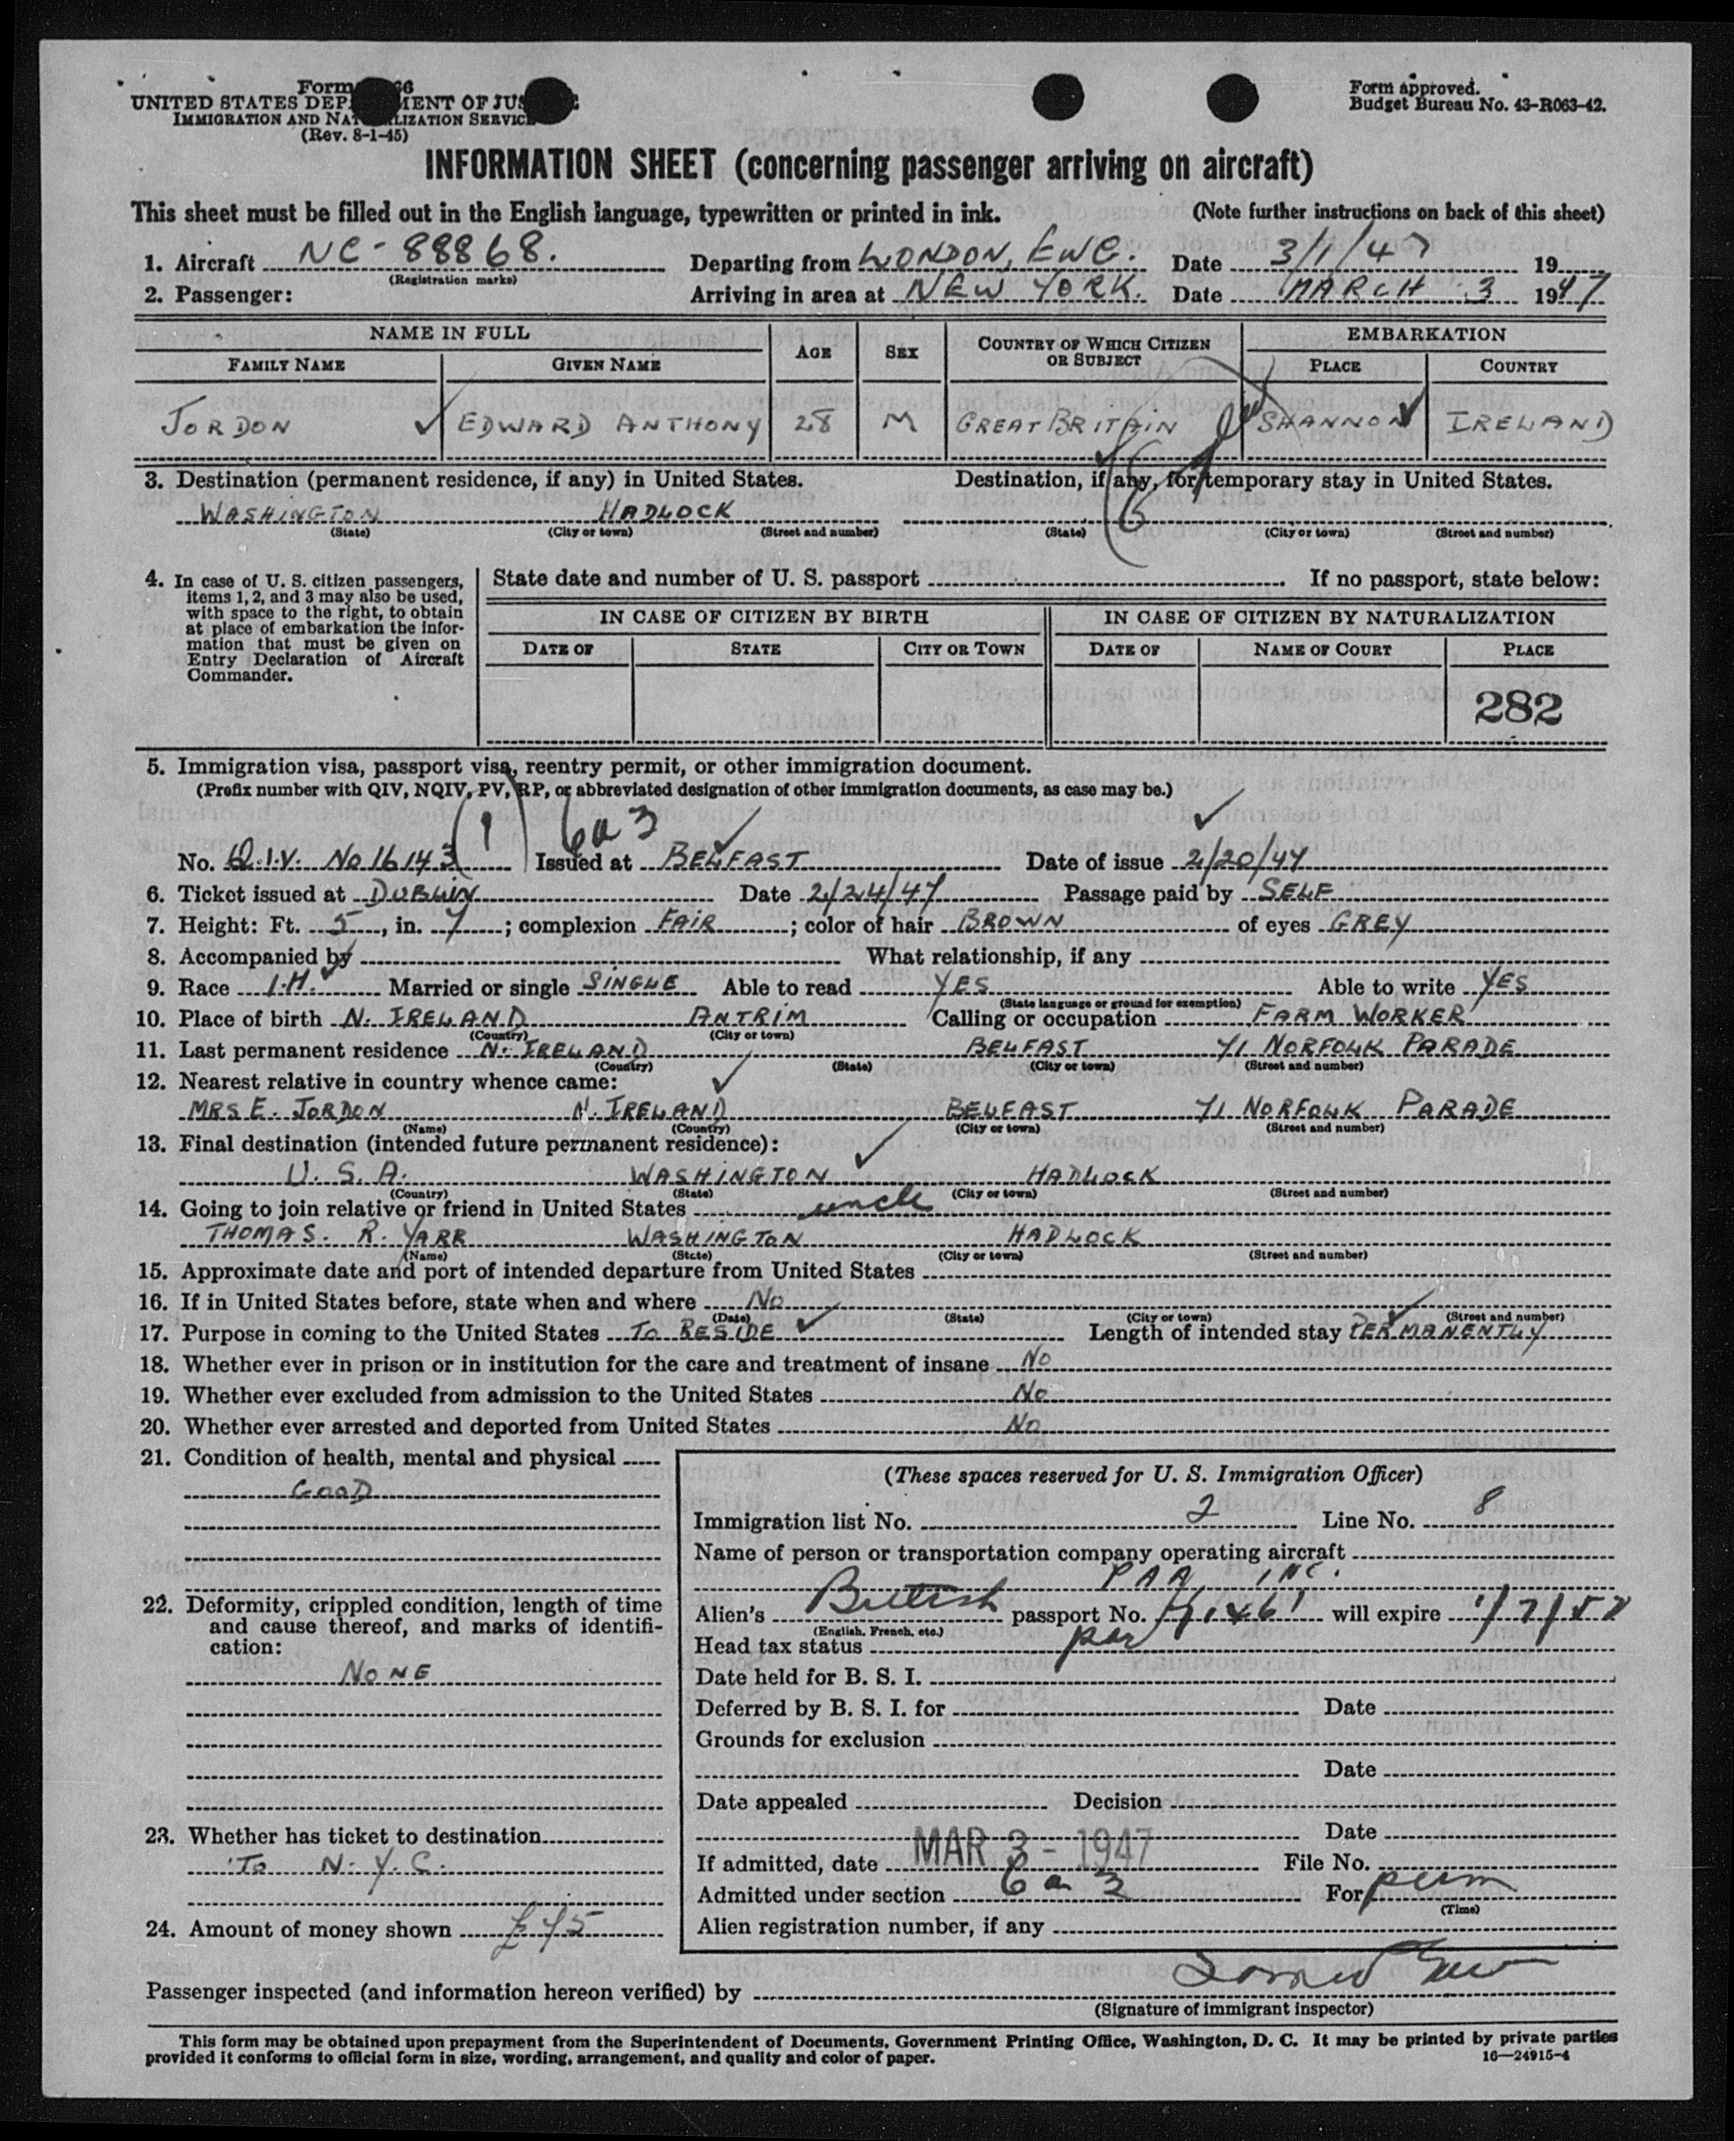 Form 66
UNITED STATES DEPARTMENT OF JUS
IMMIGRATION AND NATURALIZATION SERVICE
(Rev. 8-1-45)
Form approved.
Budget Bureau No. 43-R063-42.
INFORMATION SHEET (concerning passenger arriving on aircraft)
This sheet must be filled out in the English language, typewritten or printed in ink. (Note further instructions on back of this sheet)
1. Aircraft NC-88868. Departing from LONDON, ENG. Date 3/1/47 19
(Registration marks)
2. Passenger: Arriving in area at NEW YORK. Date MARCH 3 1947
NAME IN FULL AGE SEX COUNTRY OF WHICH CITIZEN OR SUBJECT EMBARKATION
FAMILY NAME GIVEN NAME PLACE COUNTRY
JORDON EDWARD ANTHONY 28 M GREAT BRITAIN SHANNON IRELAND
3. Destination (permanent residence, if any) in United States. Destination, if any, for temporary stay in United States.
WASHINGTON HADLOCK
(State) (City or town) (Street and number) (State) (City or town) (Street and number)
4. In case of U. S. citizen passengers, items 1, 2, and 3 may also be used, with space to the right, to obtain at place of embarkation the information that must be given on Entry Declaration of Aircraft Commander.
State date and number of U. S. passport If no passport, state below:
IN CASE OF CITIZEN BY BIRTH IN CASE OF CITIZEN BY NATURALIZATION
DATE OF STATE CITY OR TOWN DATE OF NAME OF COURT PLACE
282
5. Immigration visa, passport visa, reentry permit, or other immigration document.
(Prefix number with QIV, NQIV, PV, RP, or abbreviated designation of other immigration documents, as case may be.)
(1) 6a3
No. Q.I.V. No 16143 Issued at BELFAST Date of issue 2/20/47
6. Ticket issued at DUBLIN Date 2/24/47 Passage paid by SELF
7. Height: Ft. 5, in. 7; complexion FAIR; color of hair BROWN of eyes GREY
8. Accompanied by What relationship, if any
9. Race I.H. Married or single SINGLE Able to read YES Able to write YES
(State language or ground for exemption)
10. Place of birth N. IRELAND ANTRIM Calling or occupation FARM WORKER
(Country) (City or town)
11. Last permanent residence N. IRELAND BELFAST 71 NORFOLK PARADE
(Country) (State) (City or town) (Street and number)
12. Nearest relative in country whence came:
MRS E. JORDON N. IRELAND BELFAST 71 NORFOLK PARADE
(Name) (Country) (City or town) (Street and number)
13. Final destination (intended future permanent residence):
U. S. A. WASHINGTON HADLOCK
(Country) (State) (City or town) (Street and number)
14. Going to join relative or friend in United States uncle
THOMAS. R. YARR WASHINGTON HADLOCK
(Name) (State) (City or town) (Street and number)
15. Approximate date and port of intended departure from United States
16. If in United States before, state when and where No
(Date) (State) (City or town) (Street and number)
17. Purpose in coming to the United States To RESIDE Length of intended stay PERMANENTLY
18. Whether ever in prison or in institution for the care and treatment of insane No
19. Whether ever excluded from admission to the United States No
20. Whether ever arrested and deported from United States No
21. Condition of health, mental and physical
GOOD
22. Deformity, crippled condition, length of time and cause thereof, and marks of identification:
NONE
23. Whether has ticket to destination
To N. Y. C.
24. Amount of money shown £45
(These spaces reserved for U. S. Immigration Officer)
Immigration list No. 2 Line No. 8
Name of person or transportation company operating aircraft
PAA INC.
Alien's British passport No. will expire
(English, French, etc.)
Head tax status
Date held for B. S. I.
Deferred by B. S. I. for Date
Grounds for exclusion
Date
Date appealed Decision
Date
If admitted, date MAR 3 - 1947 File No.
Admitted under section 6 a 3 For perm
(Time)
Alien registration number, if any
Passenger inspected (and information hereon verified) by
(Signature of immigrant inspector)
This form may be obtained upon prepayment from the Superintendent of Documents, Government Printing Office, Washington, D. C. It may be printed by private parties
provided it conforms to official form in size, wording, arrangement, and quality and color of paper.
16—24915-4